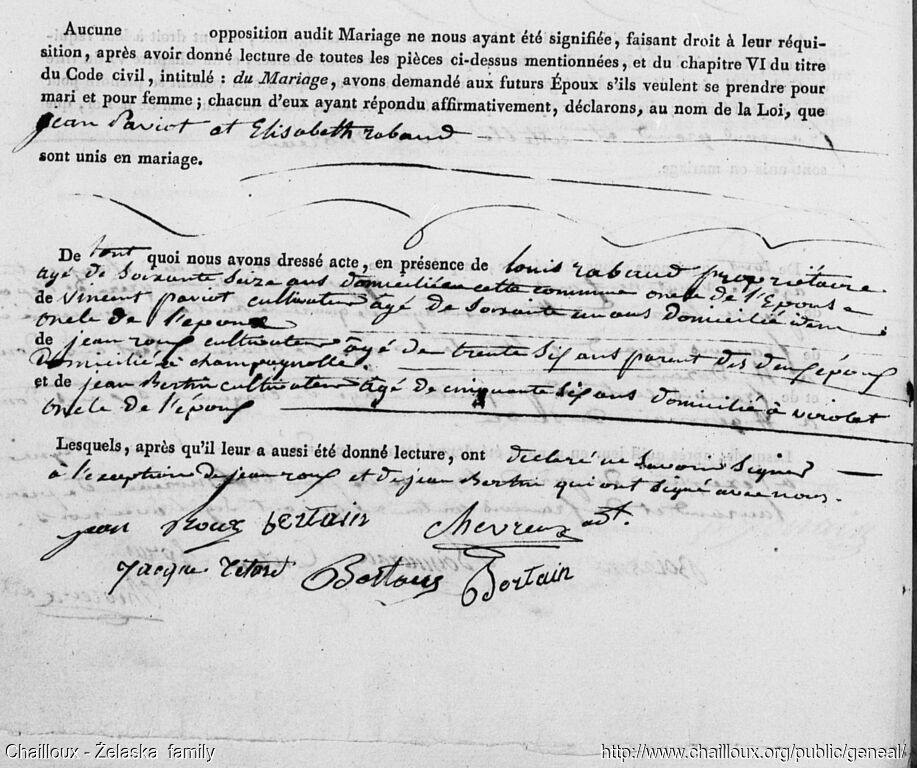 Aucune opposition audit Mariage ne nous ayant été signifiée, faisant droit à leur réqui-
sition, après avoir donné lecture de toutes les pièces ci-dessus mentionnées, et du chapitre VI du titre
du Code civil, intitulé : du Mariage, avons demandé aux futurs Époux s'ils veulent se prendre pour
mari et pour femme ; chacun d'eux ayant répondu affirmativement, déclarons, au nom de la Loi, que
jean paviot et Elisabeth rabaud
sont unis en mariage.
De tout quoi nous avons dressé acte, en présence de louis rabaud propriétaire
agé de soixante seize ans domicilié en cette commune oncle de l'Epouse
de vincent paviot cultivateur agé de soixante un ans domicilié idem
oncle de l'epoux
de jean roux cultivateur agé de trente six ans parent des deux époux
domicilié à champagnolle.
et de jean Bertin cultivateur agé de cinquante six ans domicilié à virolet
oncle de l'époux
Lesquels, après qu'il leur a aussi été donné lecture, ont declaré ne savoir signer
à l'exception de jean roux et de jean Bertin qui ont signé avec nous.
jean Roux Bertain Chevreux adt.
Jacque Bertain
Chailloux - Želaska family
http://www.chailloux.org/public/geneal/